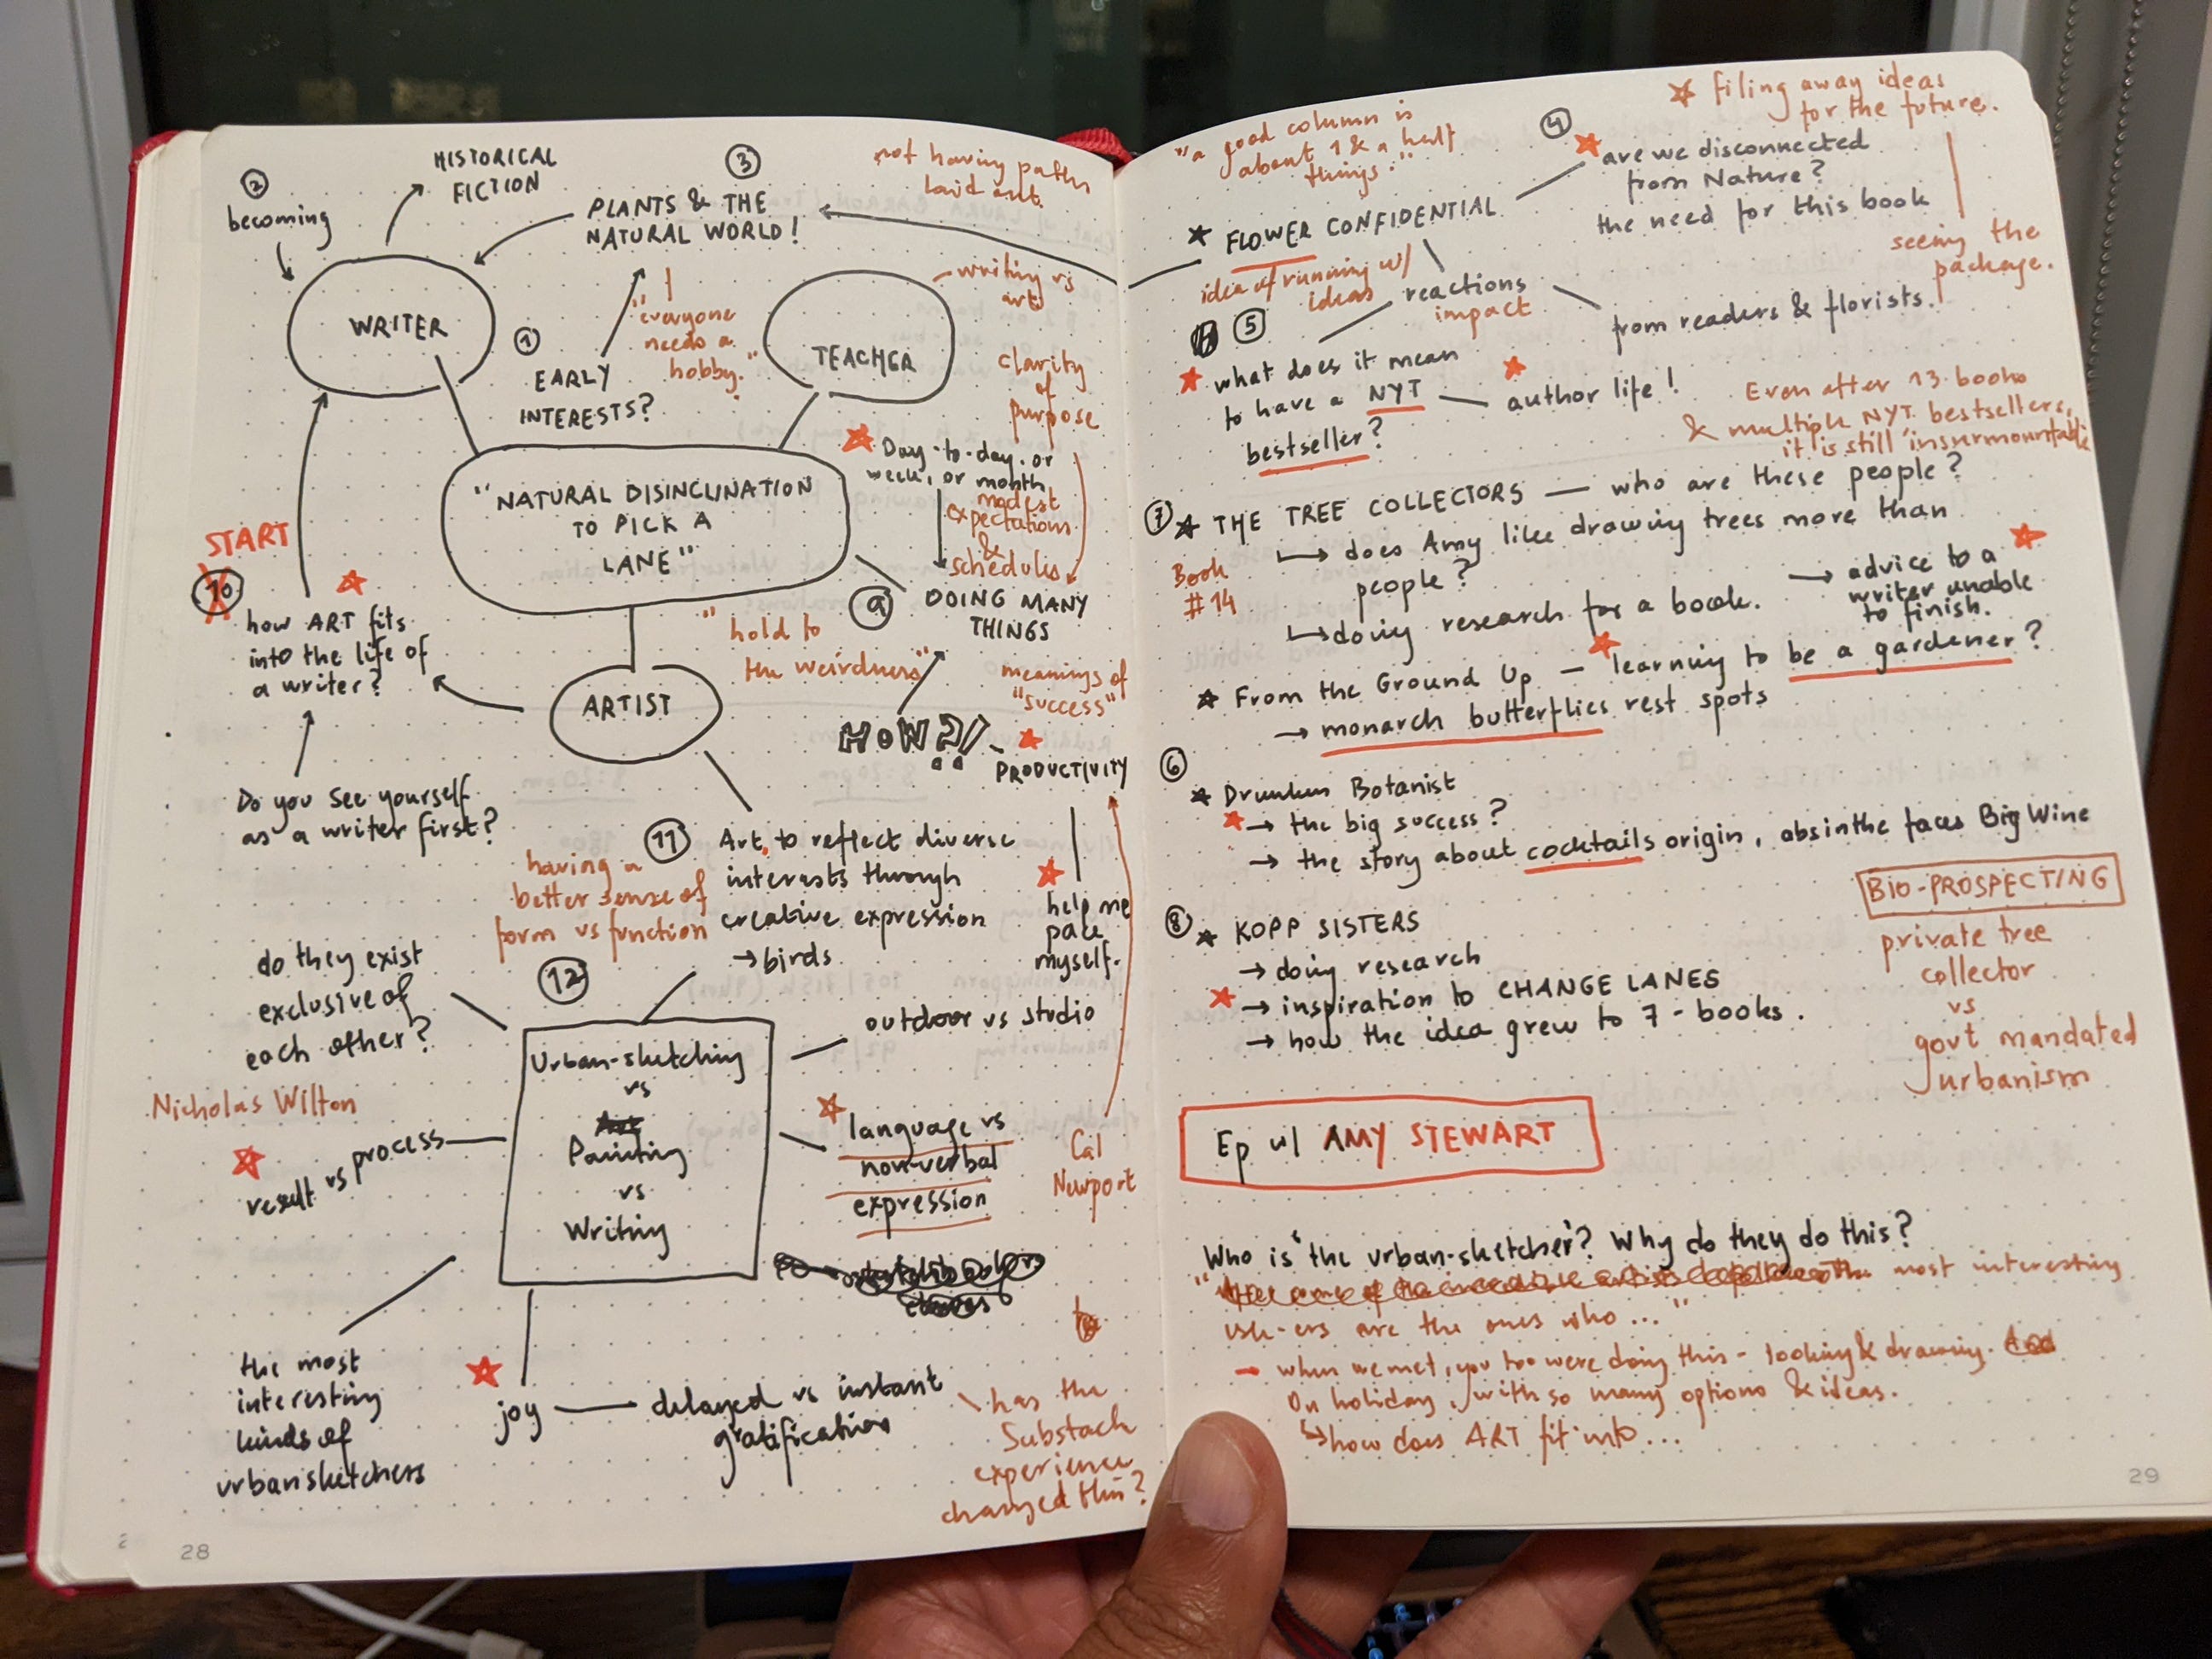 ②
becoming
HISTORICAL
FICTION
③
PLANTS & THE
NATURAL WORLD!
not having paths
laid out.
WRITER
①
EARLY
INTERESTS?
"everyone
needs a
hobby."
TEACHER
writing vs
art
clarity
of
purpose
"NATURAL DISINCLINATION
TO PICK A
LANE"
Day-to-day. or
week, or month
modest
expectations
&
schedules
START
10
how ART fits
into the life of
a writer?
⑨
DOING MANY
THINGS
"hold to
the weirdness"
ARTIST
meanings of
"success"
HOW?!
PRODUCTIVITY
Do you see yourself
as a writer first?
⑪
Art, to reflect diverse
interests through
creative expression
→ birds.
having a
better sense of
form vs function
help me
pace
myself.
do they exist
exclusive of
each other?
⑫
Urban-sketching
vs
Painting
vs
Writing
outdoor vs studio
Nicholas Wilton
result vs process
language vs
non-verbal
expression
Cal
Newport
the most
interesting
kinds of
urbansketchers
joy
delayed vs instant
gratification
has the
Substack
experience
changed this?
28
"a good column is
about 1 & a half
things."
④
filing away ideas
for the future.
are we disconnected
from Nature?
the need for this book
seeing the
package.
FLOWER CONFIDENTIAL
idea of running w/
ideas
reactions
impact
from readers & florists.
⑤
what does it mean
to have a NYT
bestseller?
author life!
Even after 13 books
& multiple NYT bestsellers,
it is still 'insurmountable'
⑦ THE TREE COLLECTORS — who are these people?
↳ does Amy like drawing trees more than
people?
Book
#14
↳ doing research for a book.
→ advice to a
writer unable
to finish.
From the Ground Up — learning to be a gardener?
→ monarch butterflies rest spots
⑥
Drunken Botanist
→ the big success?
→ the story about cocktails origin, absinthe faces Big Wine
BIO-PROSPECTING
private tree
collector
vs
govt mandated
urbanism
⑧ KOPP SISTERS
→ doing research
→ inspiration to CHANGE LANES
→ how the idea grew to 7-books.
Ep w/ AMY STEWART
Who is 'the urban-sketcher'? Why do they do this?
The most interesting
usk-ers are the ones who..."
- when we met, you too were doing this - looking & drawing.
On holiday, with so many options & ideas.
↳ how does ART fit into...
29